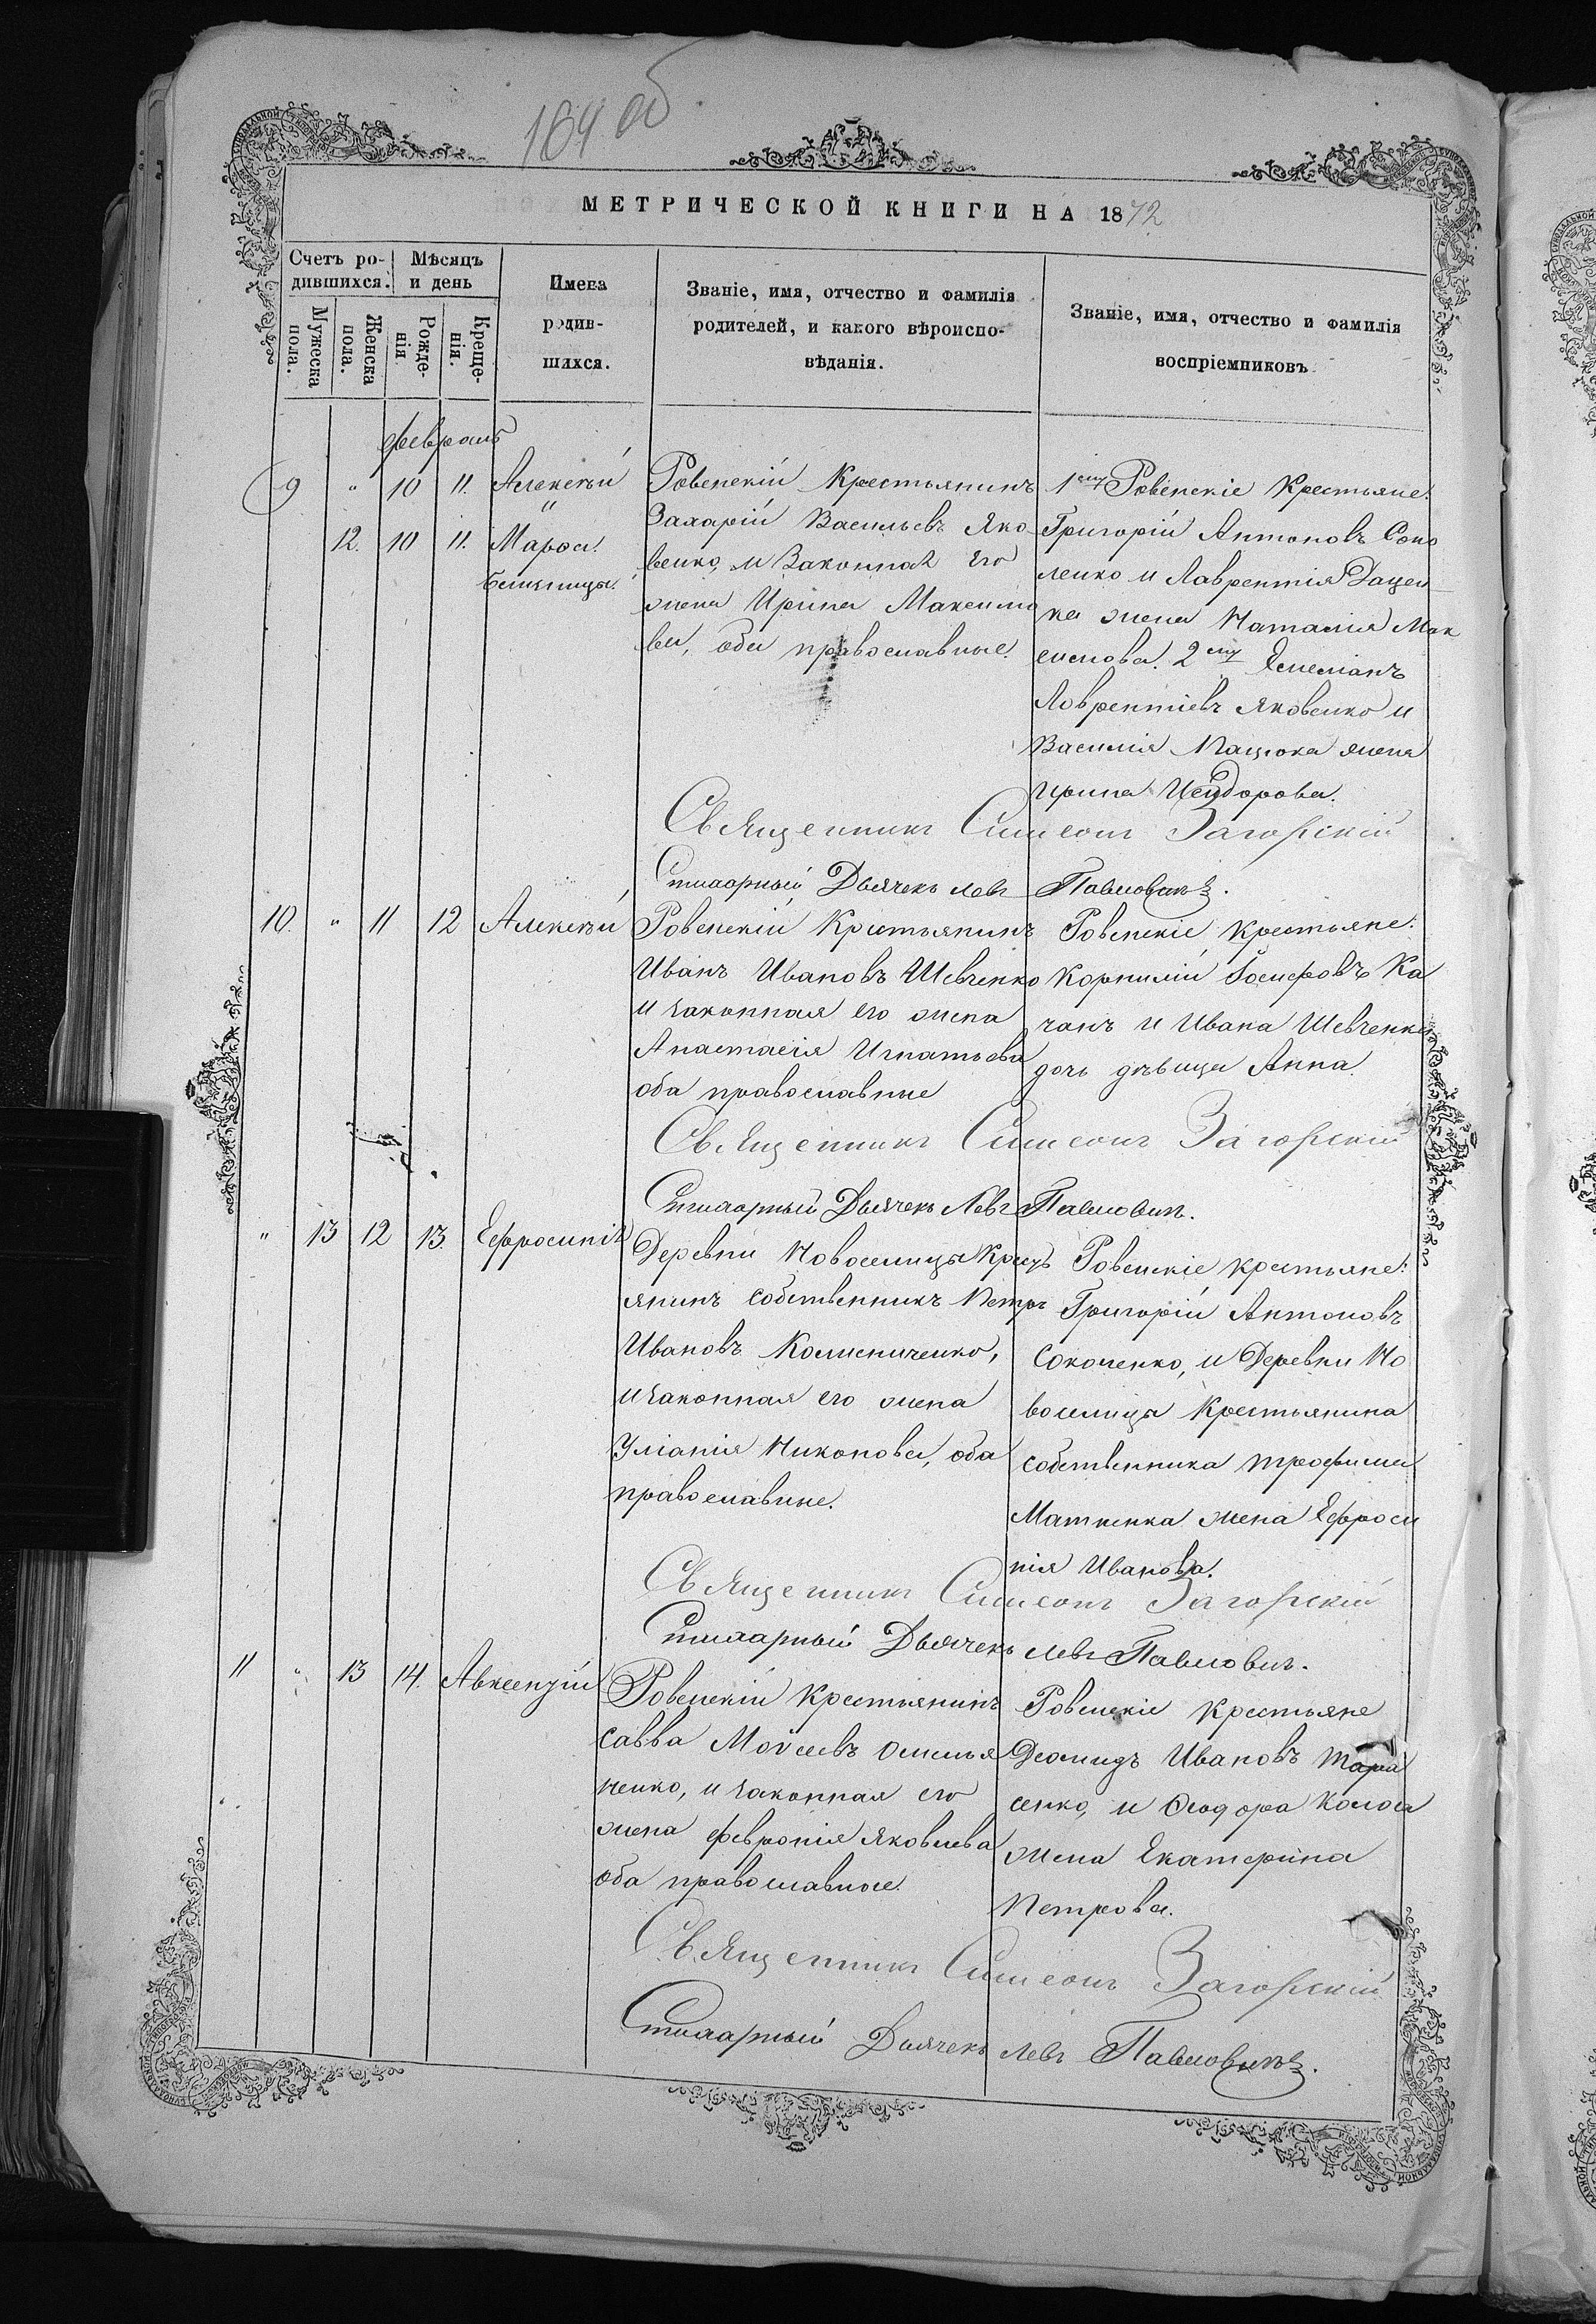 164 об
МЕТРИЧЕСКОЙ КНИГИ НА 1872
Счетъ ро-
дившихся.
Мѣсяцъ
и день
Мужеска
пола.
Женска
пола.
Рожде-
нія
Креще-
нія.
Имена
родив-
шихся.
Званіе, имя, отчество и фамилія
родителей, и какого вѣроиспо-
вѣданія.
Званіе, имя, отчество и фамилія
воспріемниковъ
февраль
9 " 10 11. Алексѣй
"
12. 10 11. Марѳа.
близнецы.
Ровенскій Крестьянинъ
Захарій Васильевъ Яко
венко, и Законная Его
жена Ирина Максимо
ва, оба православные.
1му Ровенскіе Крестьяне:
Григорій Антоновъ Соко
ленко и Лаврентія Дацен
ка жена Наталія Мак
симова. 2му Емеліанъ
Лаврентіевъ Яковенко и
Василія Пацюка жена
Ирина Исидорова.
Священникъ Симеонъ Загорскій
Стихарный Дьячекъ Левъ Павловичъ.
10. " 11 12 Алексѣй
Ровенскій Крестьянинъ
Иванъ Ивановъ Шевченко
и законная его жена
Анастасія Игнатьева
оба православные
Ровенскіе крестьяне:
Корнилій Іосифовъ Ка
чанъ и Ивана Шевченка
дочь дѣвица Анна
Священникъ Симеонъ Загорскій
Стихарный Дьячекъ Левъ Павловичъ.
" 13 12 13. Ефросинія
Деревни Новоселицы Крест
янинъ собственникъ Петръ
Ивановъ Колисниченко,
и законная его жена
Уліанія Никонова, оба
православные.
Ровенскіе крестьяне:
Григорій Антоновъ
Соколенко, и Деревни Но
воселицы Крестьянина
собственника Трофима
жена Ефроси
нія Иванова.
Священникъ Симеонъ Загорскій
Стихарный Дьячекъ Левъ Павловичъ.
11 " 13 14. Авксентій
Ровенскій Крестьянинъ
Савва Моѵсеевъ Омелья
ненко, и законная его
жена Февронія Яковлева
оба православные
Ровенскіе Крестьяне
Деомидъ Ивановъ Тара
сенко, и Ѳеодора Колоса
жена Екатерина
Петрова.
Священникъ Симеонъ Загорскій
Стихарный Дьячекъ Левъ Павловичъ.